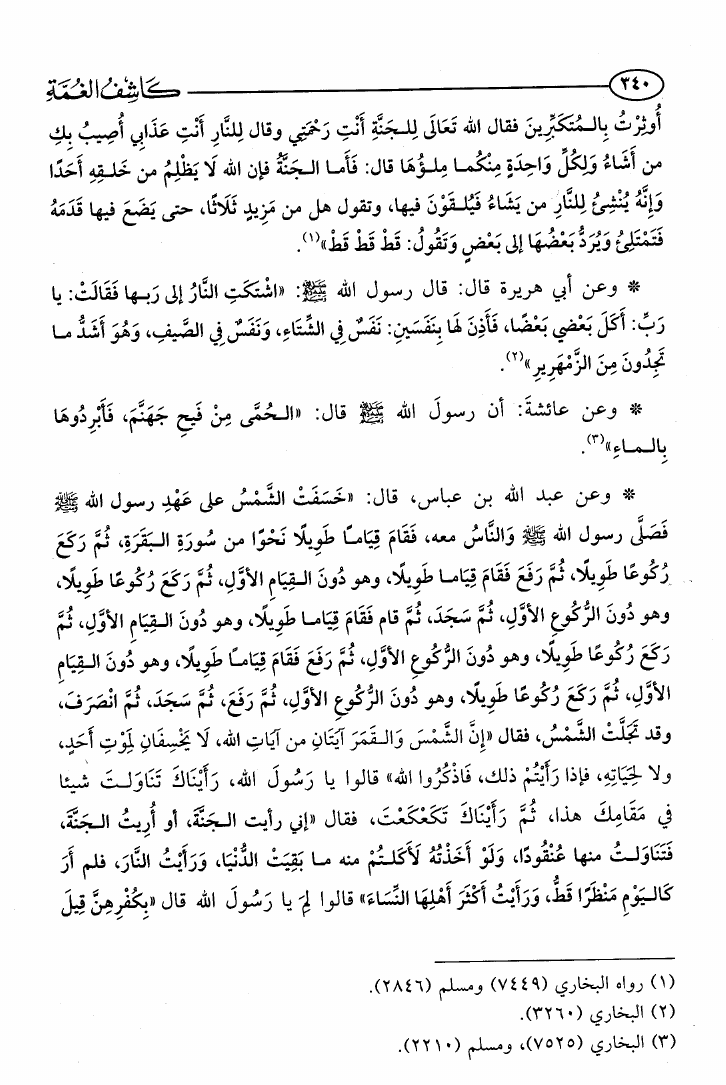 ٣٤٠ كَاشِفُ الغُمَّةِ
أُوثِرْتُ بِالمُتَكَبِّرِينَ فقال الله تَعَالَى لِلجَنَّةِ أَنْتِ رَحْمَتِي وقال لِلنَّارِ أَنْتِ عَذَابِي أُصِيبُ بِكِ
من أَشَاءُ وَلِكُلِّ وَاحِدَةٍ مِنْكُمـا مِلْؤُهَا قال: فَأَمـا الجَنَّةُ فإن الله لَا يَظْلِمُ من خَلقِهِ أَحَدًا
وَإِنَّهُ يُنْشِئُ لِلنَّارِ من يَشَاءُ فَيُلقَوْنَ فيها، وتقول هل من مَزِيدٍ ثَلَاثًا، حتى يَضَعَ فيها قَدَمَهُ
فَتَمْتَلِئُ وَيُرَدُّ بَعْضُهَا إلى بَعْضٍ وَتَقُولُ: قَطْ قَطْ قَطْ»(١).
* وعن أبي هريرة قال: قال رسول الله ﷺ: «اشْتَكَتِ النَّارُ إلى رَبـها فَقَالَتْ: يا
رَبِّ: أَكَلَ بَعْضِي بَعْضًا، فَأَذِنَ لَها بِنَفَسَينِ: نَفَسٌ في الشِّتَاءِ، وَنَفَسٌ في الصَّيفِ، وَهُوَ أَشَدُّ مـا
تَجِدُونَ مِنَ الزَّمْهَرِيرِ»(٢).
* وعن عائشةَ: أن رسولَ الله ﷺ قال: «الحُمَّى مِنْ فَيحِ جَهَنَّمَ، فَأَبْرِدُوهَا
بِالمـاءِ»(٣).
* وعن عبد الله بن عباس، قال: «خَسَفَتْ الشَّمْسُ على عَهْدِ رسول الله ﷺ
فَصَلَّى رسول الله ﷺ وَالنَّاسُ معه، فَقَامَ قِيَامـًا طَوِيلًا نَحْوًا من سُورَةِ البَقَرَةِ، ثُمَّ رَكَعَ
رُكُوعًا طَوِيلًا، ثُمَّ رَفَعَ فَقَامَ قِيَامـا طَوِيلًا، وهو دُونَ القِيَامِ الأوَّلِ، ثُمَّ رَكَعَ رُكُوعًا طَوِيلًا،
وهو دُونَ الرُّكُوعِ الأوَّلِ، ثُمَّ سَجَدَ، ثُمَّ قام فَقَامَ قِيَامـا طَوِيلًا، وهو دُونَ القِيَامِ الأوَّلِ، ثُمَّ
رَكَعَ رُكُوعًا طَوِيلًا، وهو دُونَ الرُّكُوعِ الأوَّلِ، ثُمَّ رَفَعَ فَقَامَ قِيَامـًا طَوِيلًا، وهو دُونَ القِيَامِ
الأوَّلِ، ثُمَّ رَكَعَ رُكُوعًا طَوِيلًا، وهو دُونَ الرُّكُوعِ الأوَّلِ، ثُمَّ رَفَعَ، ثُمَّ سَجَدَ، ثُمَّ انْصَرَفَ،
وقد تَجَلَّتْ الشَّمْسُ، فقال «إِنَّ الشَّمْسَ وَالقَمَرَ آيَتَانِ من آيَاتِ الله، لَا يَخْسِفَانِ لِمَوْتِ أَحَدٍ،
ولا لِحَيَاتِهِ، فإذا رَأَيْتُمْ ذلك، فَاذْكُرُوا الله» قالوا يا رَسُولَ الله، رَأَيْنَاكَ تَنَاوَلتَ شيئا
في مَقَامِكَ هذا، ثُمَّ رَأَيْنَاكَ تَكَعْكَعْتَ، فقال «إني رأيت الجَنَّةَ، أو أُرِيتُ الجَنَّةَ،
فَتَنَاوَلتُ منها عُنْقُودًا، وَلَوْ أَخَذْتُهُ لَأَكَلتُمْ منه مـا بَقِيَتْ الدُّنْيَا، وَرَأَيْتُ النَّارَ، فلم أَرَ
كَاليَوْمِ مَنْظَرًا قَطُّ، وَرَأَيْتُ أَكْثَرَ أَهْلِهَا النِّسَاءَ» قالوا لِمَ يا رَسُولَ الله قال «بِكُفْرِهِنَّ قِيلَ
(١) رواه البخاري (٧٤٤٩) ومسلم (٢٨٤٦).
(٢) البخاري (٣٢٦٠).
(٣) البخاري (٧٥٢٥)، ومسلم (٢٢١٠).